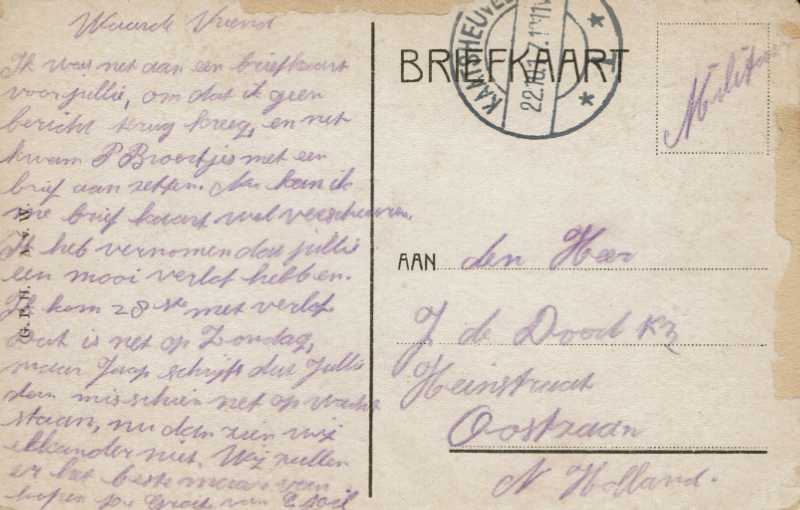 Waarde Vriend
Ik was net aan een briefkaart
voor jullie, om dat ik geen
bericht trug kreeg, en net
kwam P Broertjes met een
brief aan zetten. Nu kan ik
me brief kaart wel verscheuren.
Ik heb vernomen dat jullie
een mooi verlof hebben.
Ik kom 28ste met verlof.
Dat is net op Zondag,
maar Jaap schrijft dat Jullie
dan misschien net op wacht
staan, nu dan zien wij
elkander niet. Wij zullen
er het beste maar van
hopen de Groet van
G. P. H. A. v. W.
BRIEFKAART
KAMP
22.10.17.
Militair
AAN den Heer
J de Dood Kz
Heinstraat
Oostzaan
N Holland.